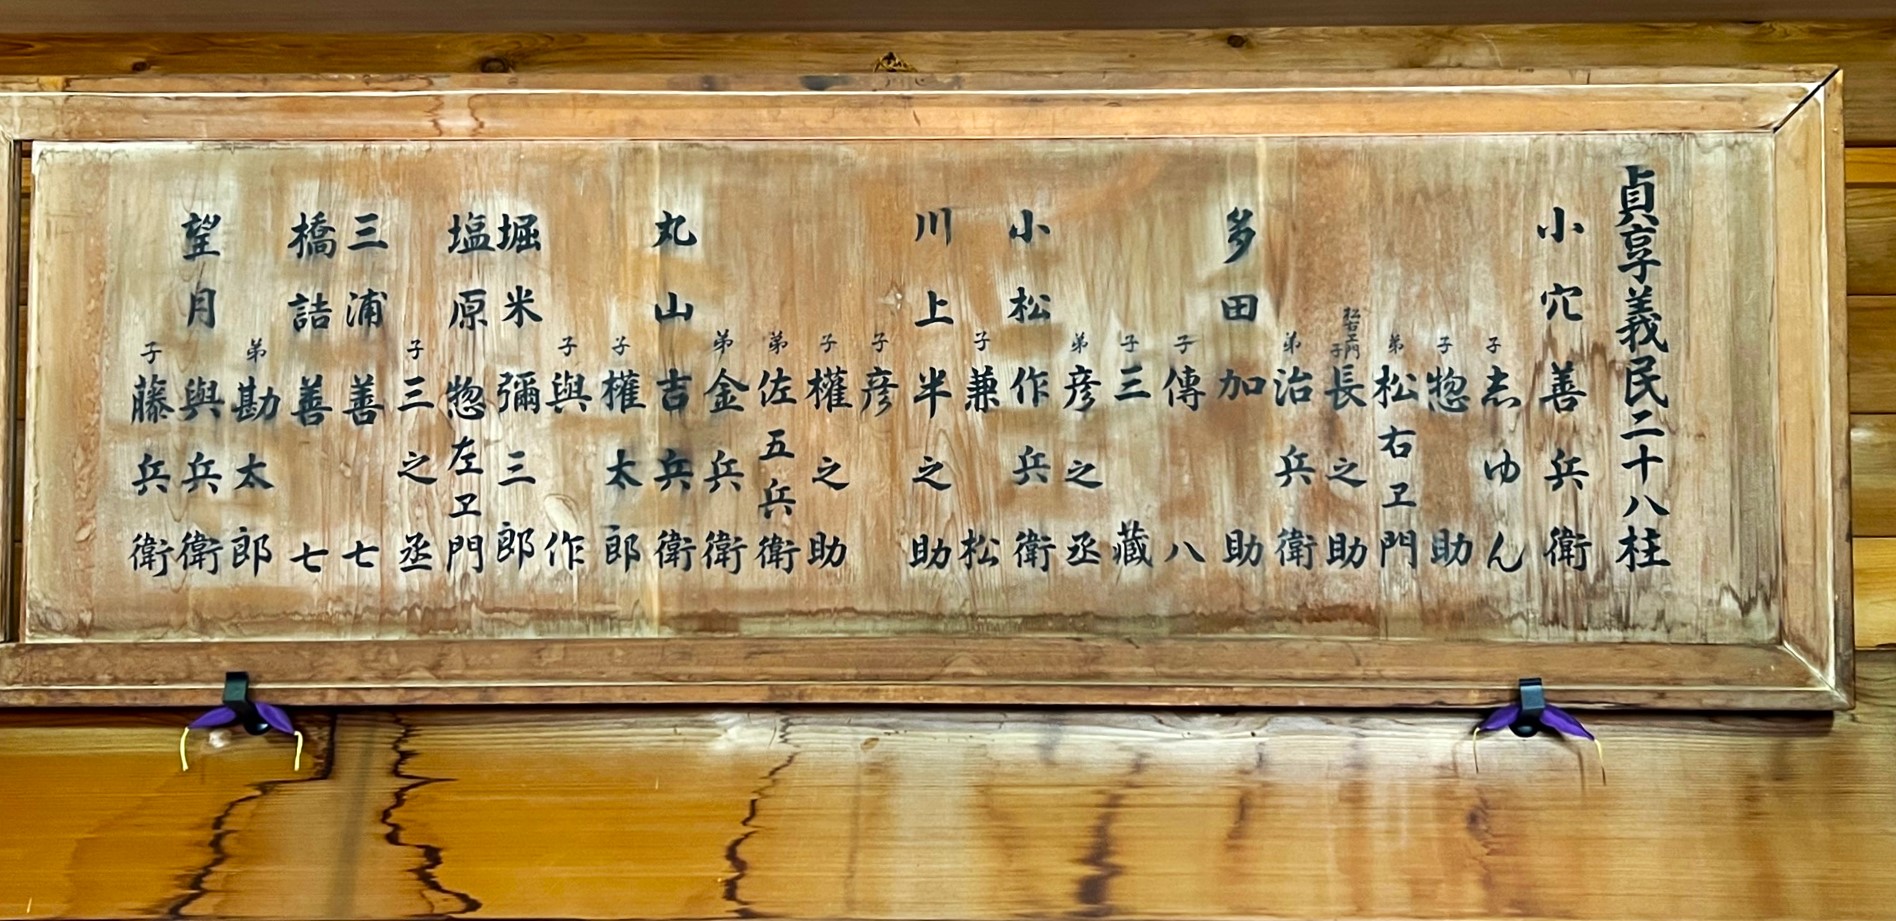 貞享義民二十八柱
小穴善兵衛
子志ゆん
子惣助
弟松右ヱ門
松右ヱ門子長之助
弟治兵衛
多田加助
子傳八
子三蔵
弟彦之丞
小松作兵衛
子兼松
川上半之助
子彦
子權之助
弟佐五兵衛
弟金兵衛
丸山吉兵衛
子權太郎
子與作
堀米彌三郎
塩原惣左ヱ門
子三之丞
三浦善七
橋詰善七
弟勘太郎
望月與兵衛
子藤兵衛